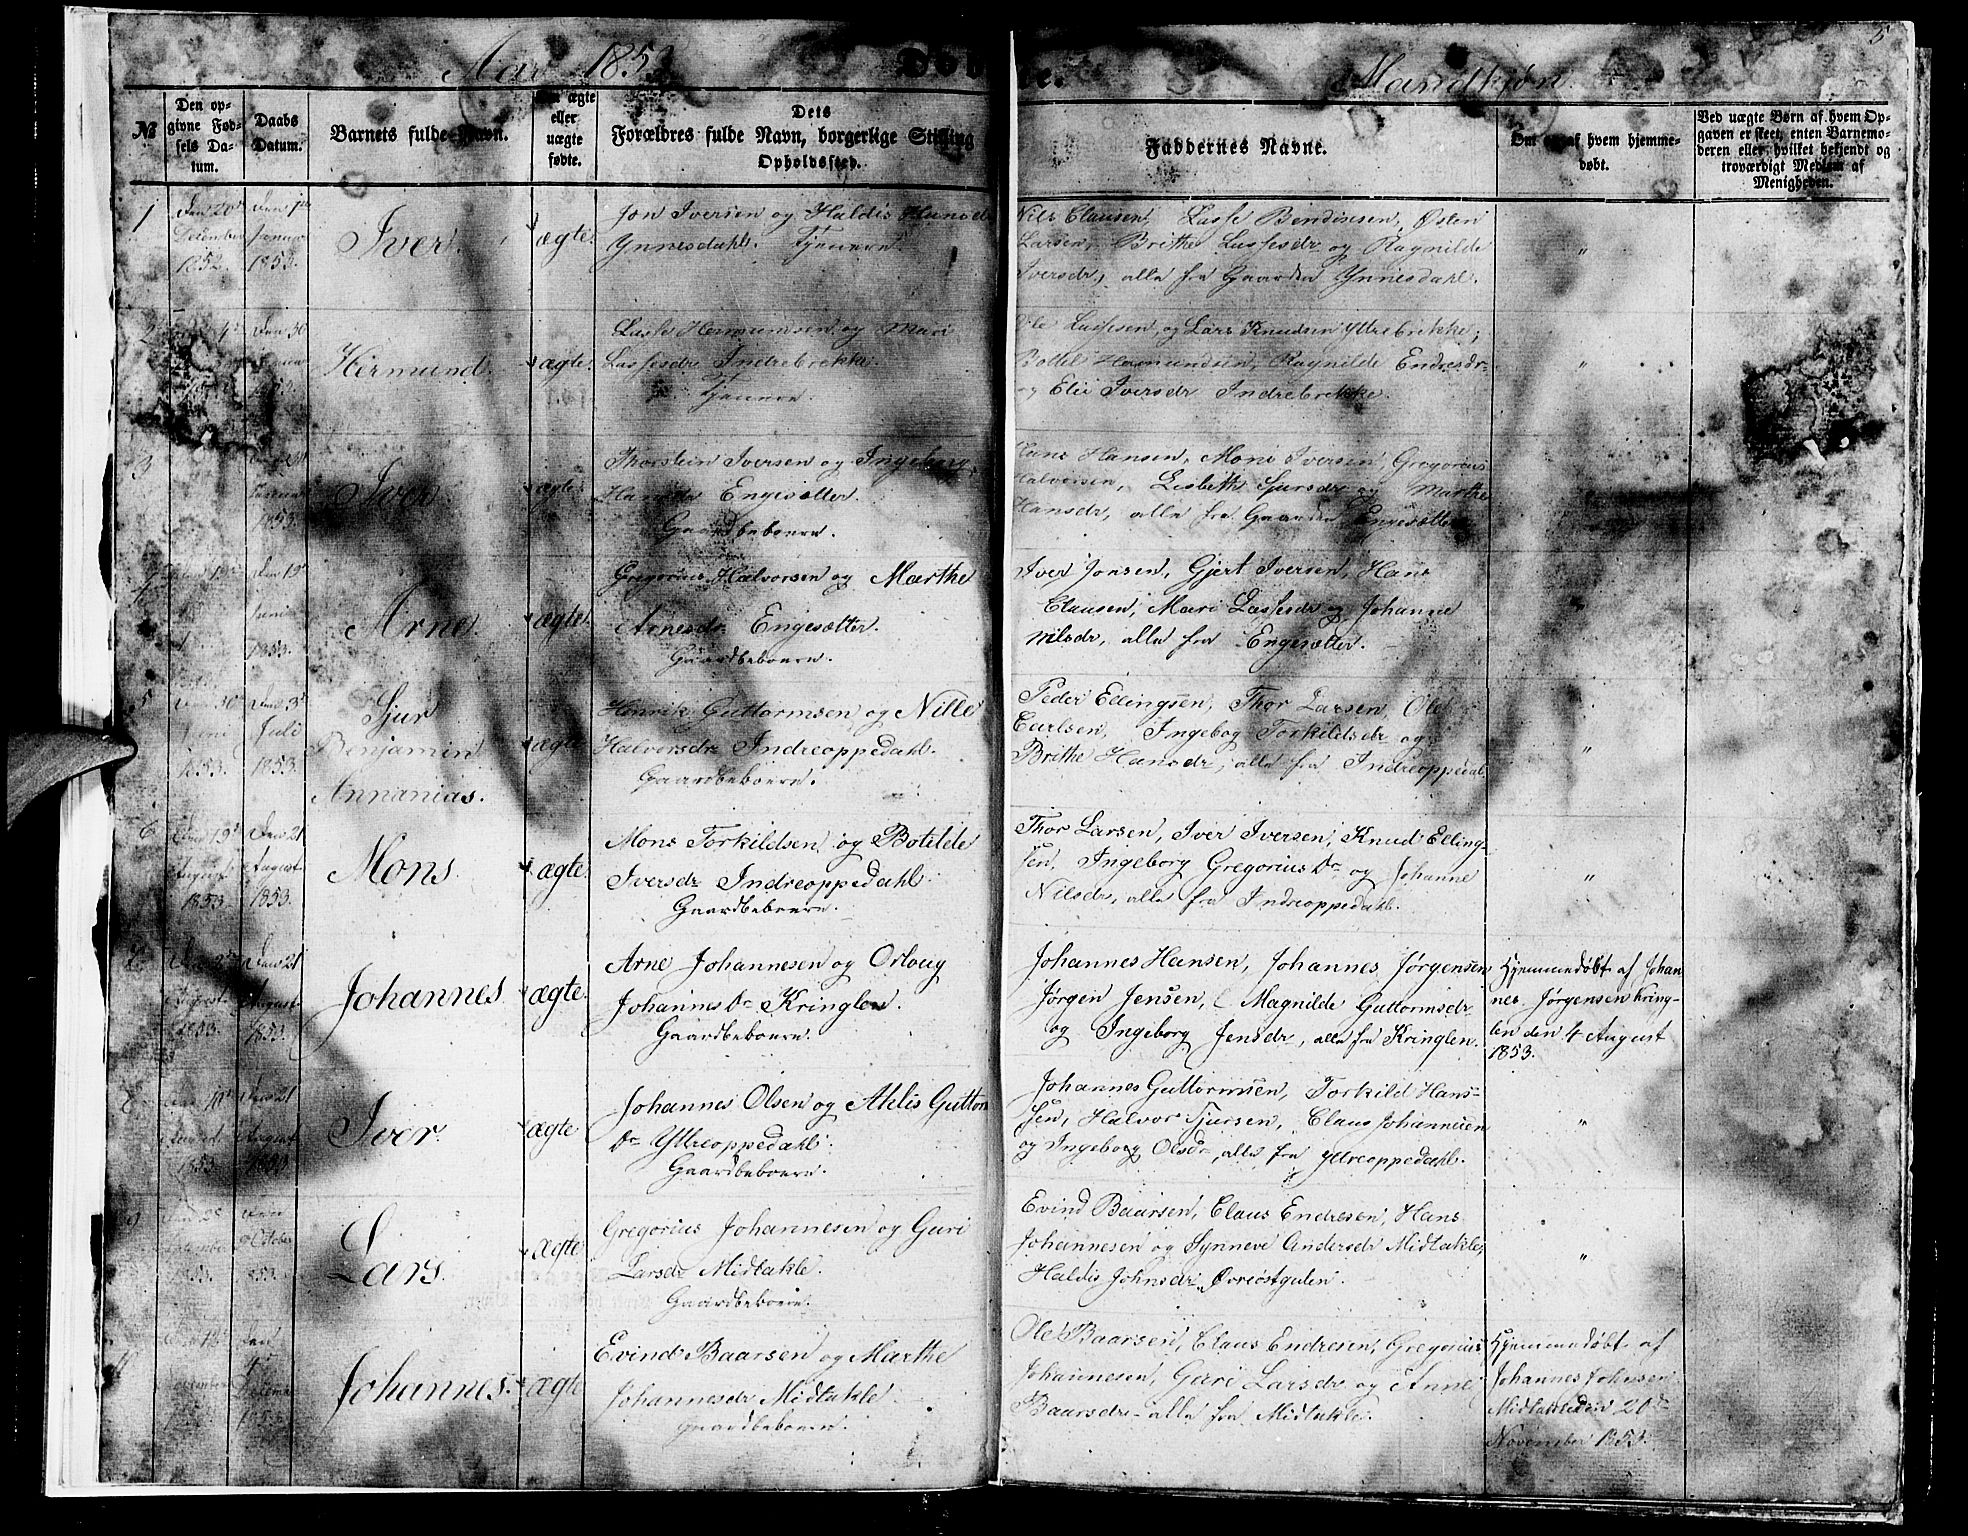 Aar 1853
Døbte.
Mandkjøn
5
№
Den opgivne Fødsels Datum.
Daabs Datum.
Barnets fulde Navn.
ægte eller uægte fødte.
Dets Forældres fulde Navn, borgerlige Stilling
Opholdssted.
Faddernes Navne.
Om og af hvem hjemmedøbt.
Ved uægte Børn af hvem Opgaven er skeet, enten Barnemoderen eller hvilket bekjendt og troværdigt Medlem af Menigheden.
1
Den 20de December 1852.
Den 1te Januar 1853.
Iver.
ægte.
Jon Iversen og Haldis Hansdr
Ynnesdahl. Tjenere.
Nils Clausen, Lasse Bendixsen, Østen
Larsen, Brithe Lassesdr og Ragnilde
Iversdr, alle fra Gaarden Ynnesdahl.
"
2
Den 30
Hermund.
ægte.
Lasse Hermundsen og Mari
Lassesdr Indrebrekke.
Tjenere.
Ole Lassesen og Lars Knudsen Yttrebrekke,
Botlel Hermundsen, Ragnilde Endresdr
og Elie Iversdr Indrebrekke.
"
3
1853.
Iver
ægte.
Thorstein Iversen og Ingeborg
Hansdr Engesætter.
Gaardbeboere.
Hans Hansen, Mons Iversen, Gregorius
Halvorsen, Lisbeth Sjursdr og Marthe
Hansdr, alle fra Gaarden Engesætter
4
Den 19de Juni 1853.
Arne.
ægte.
Gregorius Halvorsen og Marthe
Arnesdr Engesætter.
Gaardbeboere.
Iver Jonsen, Gjert Iversen, Hans
Clausen, Mari Lassesdr og Johanne
Nilsdr, alle fra Engesætter.
5
Den 30te Juni 1853.
Den 3de Juli 1853.
Sjur
Benjamin
Annanias.
ægte
Henrik Guttormsen og Nille
Halvorsdr Indreoppedahl.
Gaardbeboere.
Peder Ellingsen, Thor Larsen, Ole
Carlsen, Ingebog Torkildsdr og
Brithe Hansdr, alle fra Indreoppedal
"
6
Den 19de August 1853
Den 21 August 1853.
Mons
ægte.
Mons Torkildsen og Botilde
Iversdr Indreoppedahl.
Gaardbeboere.
Thor Larsen, Iver Iversen, Knud Elling-
sen, Ingeborg Gregoriusdr og Johanne
Nilsdr, alle fra Indreoppedahl.
"
7
August 1853.
Den 21 August 1853.
Johannes.
ægte.
Arne Johannesen og Orlaug
Johannesdr Kringlen.
Gaardbeboere.
Johannes Hansen, Johannes Jørgensen
Jørgen Jensen, Magnilde Guttormsdr
og Ingeborg Jensdr, alle fra Kringlen.
Hjemmedøbt af Johan
nes Jørgensen Kring-
len den 4 August
1853.
8
August 1853
Den 21 August 1853
Iver.
ægte
Johannes Olsen og Ahlis Guttorms
dr Yttreoppedahl.
Gaardbeboere.
Johannes Guttormsen, Torkild Hans-
sen, Halvor Sjursen, Claus Johannesen
og Ingeborg Olsdr, alle fra Yttreoppedahl.
"
9
Den 25 September 1853.
Den 9 October 1853.
Lars.
ægte
Gregorius Johannesen og Guri
Larsdr Midtakle.
Gaardbeboere.
Evind Baarsen, Claus Endresen, Hans
Johannesen og Synneve Andersdr Midtakle,
Haldis Johnsdr Øvreøstgulen.
"
Den 4de December 1853
Johannes.
ægte
Evind Baarsen og Marthe
Johannesdr Midtakle
Gaardbeboere.
Ole Baarsen, Claus Endresen, Gregorius
Johannesen, Guri Larsdr og Anne
Baarsdr alle fra Midtakle.
Hjemmedøbt af
Johannes Johnsen
Midtakle den 20de
November 1853.